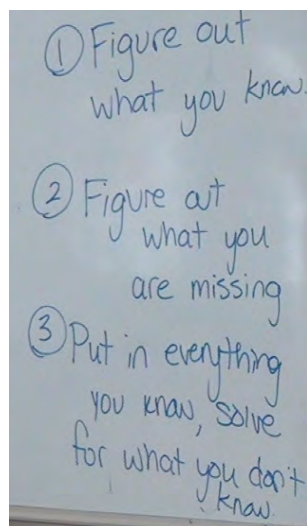 ① Figure out
what you know.
② Figure out
what you
are missing
③ Put in everything
you know, solve
for what you don't
know.